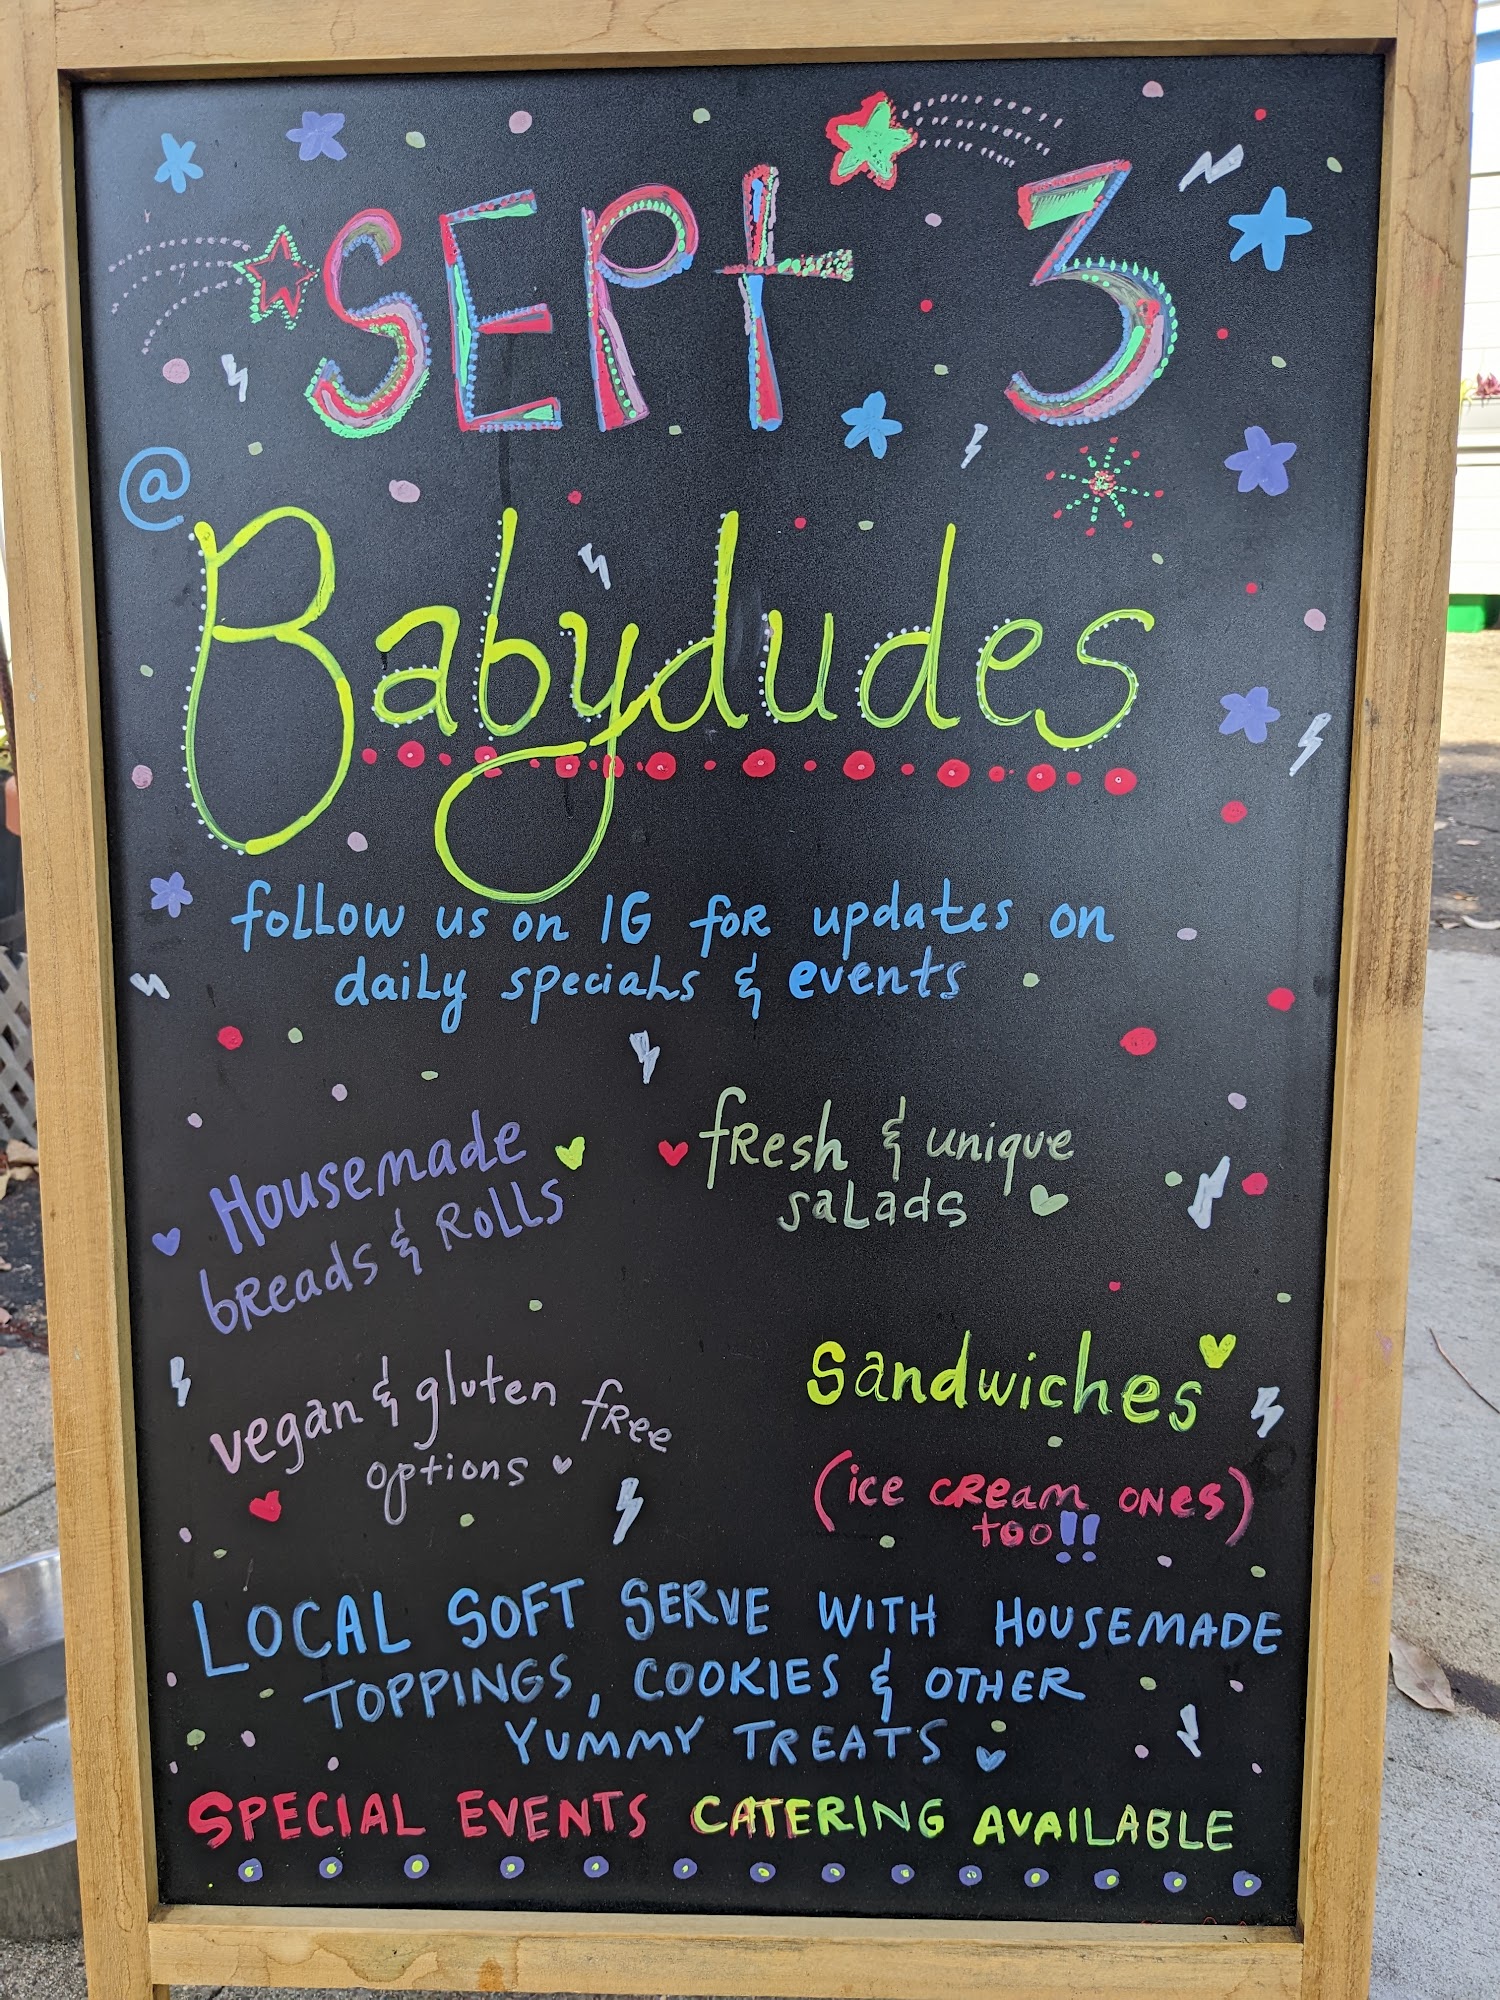 SEPt 3
@
Babydudes
follow us on IG for updates on
daily specials & events
Housemade
breads & Rolls
fresh & unique
salads
vegan & gluten free
options
Sandwiches
(ice cream ones)
too!!
LOCAL SOFT SERVE WITH HOUSEMADE
TOPPINGS, COOKIES & OTHER
YUMMY TREATS
SPECIAL EVENTS CATERING AVAILABLE